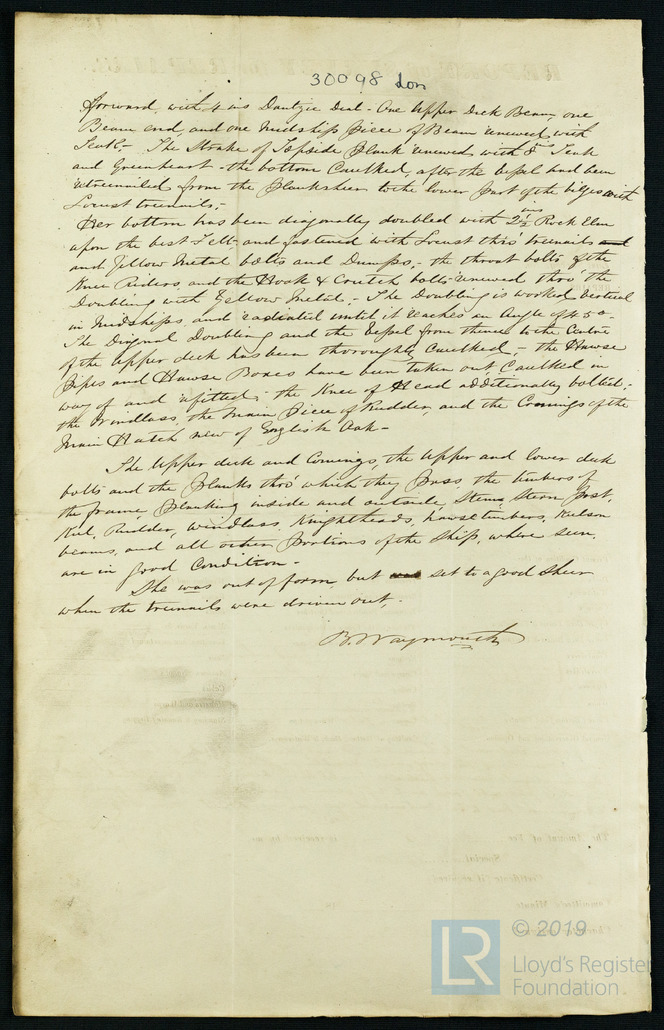 30098 Lon
forward with 4 ins Dantzic Deal - One Upper Deck Beam, one
Beam end, and one midship piece of Beam renewed with
Teak - The Strake of Topside Plank renewed with 8" Teak
and Greenheart - the bottom Caulked, after the Vessel had been
retreenailed from the planksheer to the lower part of the bilges with
Locust treenails;-
Her bottom has been diagonally doubled with 2½ ins Rock Elm
upon the best Felt and fastened with Locust thro' treenails and
and Yellow Metal bolts and Dumps;- the throat bolts of the
Knee Riders, and the Hook & Crutch bolts renewed thro' the
Doubling with Yellow Metal.- The Doubling is worked Vertical
in Midships and radiated until it reaches an Angle of 45°-
The Original Doubling and the Vessel from thence to the Centre
of the Upper deck has been thoroughly Caulked,- the Hawse
Pipes and Hawse Boxes have been taken out, Caulked in
way of and refitted; the Knee of Head additionally bolted;-
the Windlass, the Main Piece of Rudder, and the Comings of the
Main Hatch new of English Oak-
The Upper deck and Comings, the Upper and lower deck
bolts and the planks thro' which they pass, the timbers of
the frame, planking inside and outside, Stem, Stern Post,
Keel, Rudder, Windlass, Knightheads, hawsetimbers, Kelson
beams, and all other portions of the Ship, where seen,
are in good Condition -
She was out of form, but was set to a good Sheer
when the treenails were driven out,-
B. Waymouth
The Amount of Fee
is received by me
Special
Certificate (if required)
Committee's Minute
© 2019
LR
Lloyd's Register
Foundation